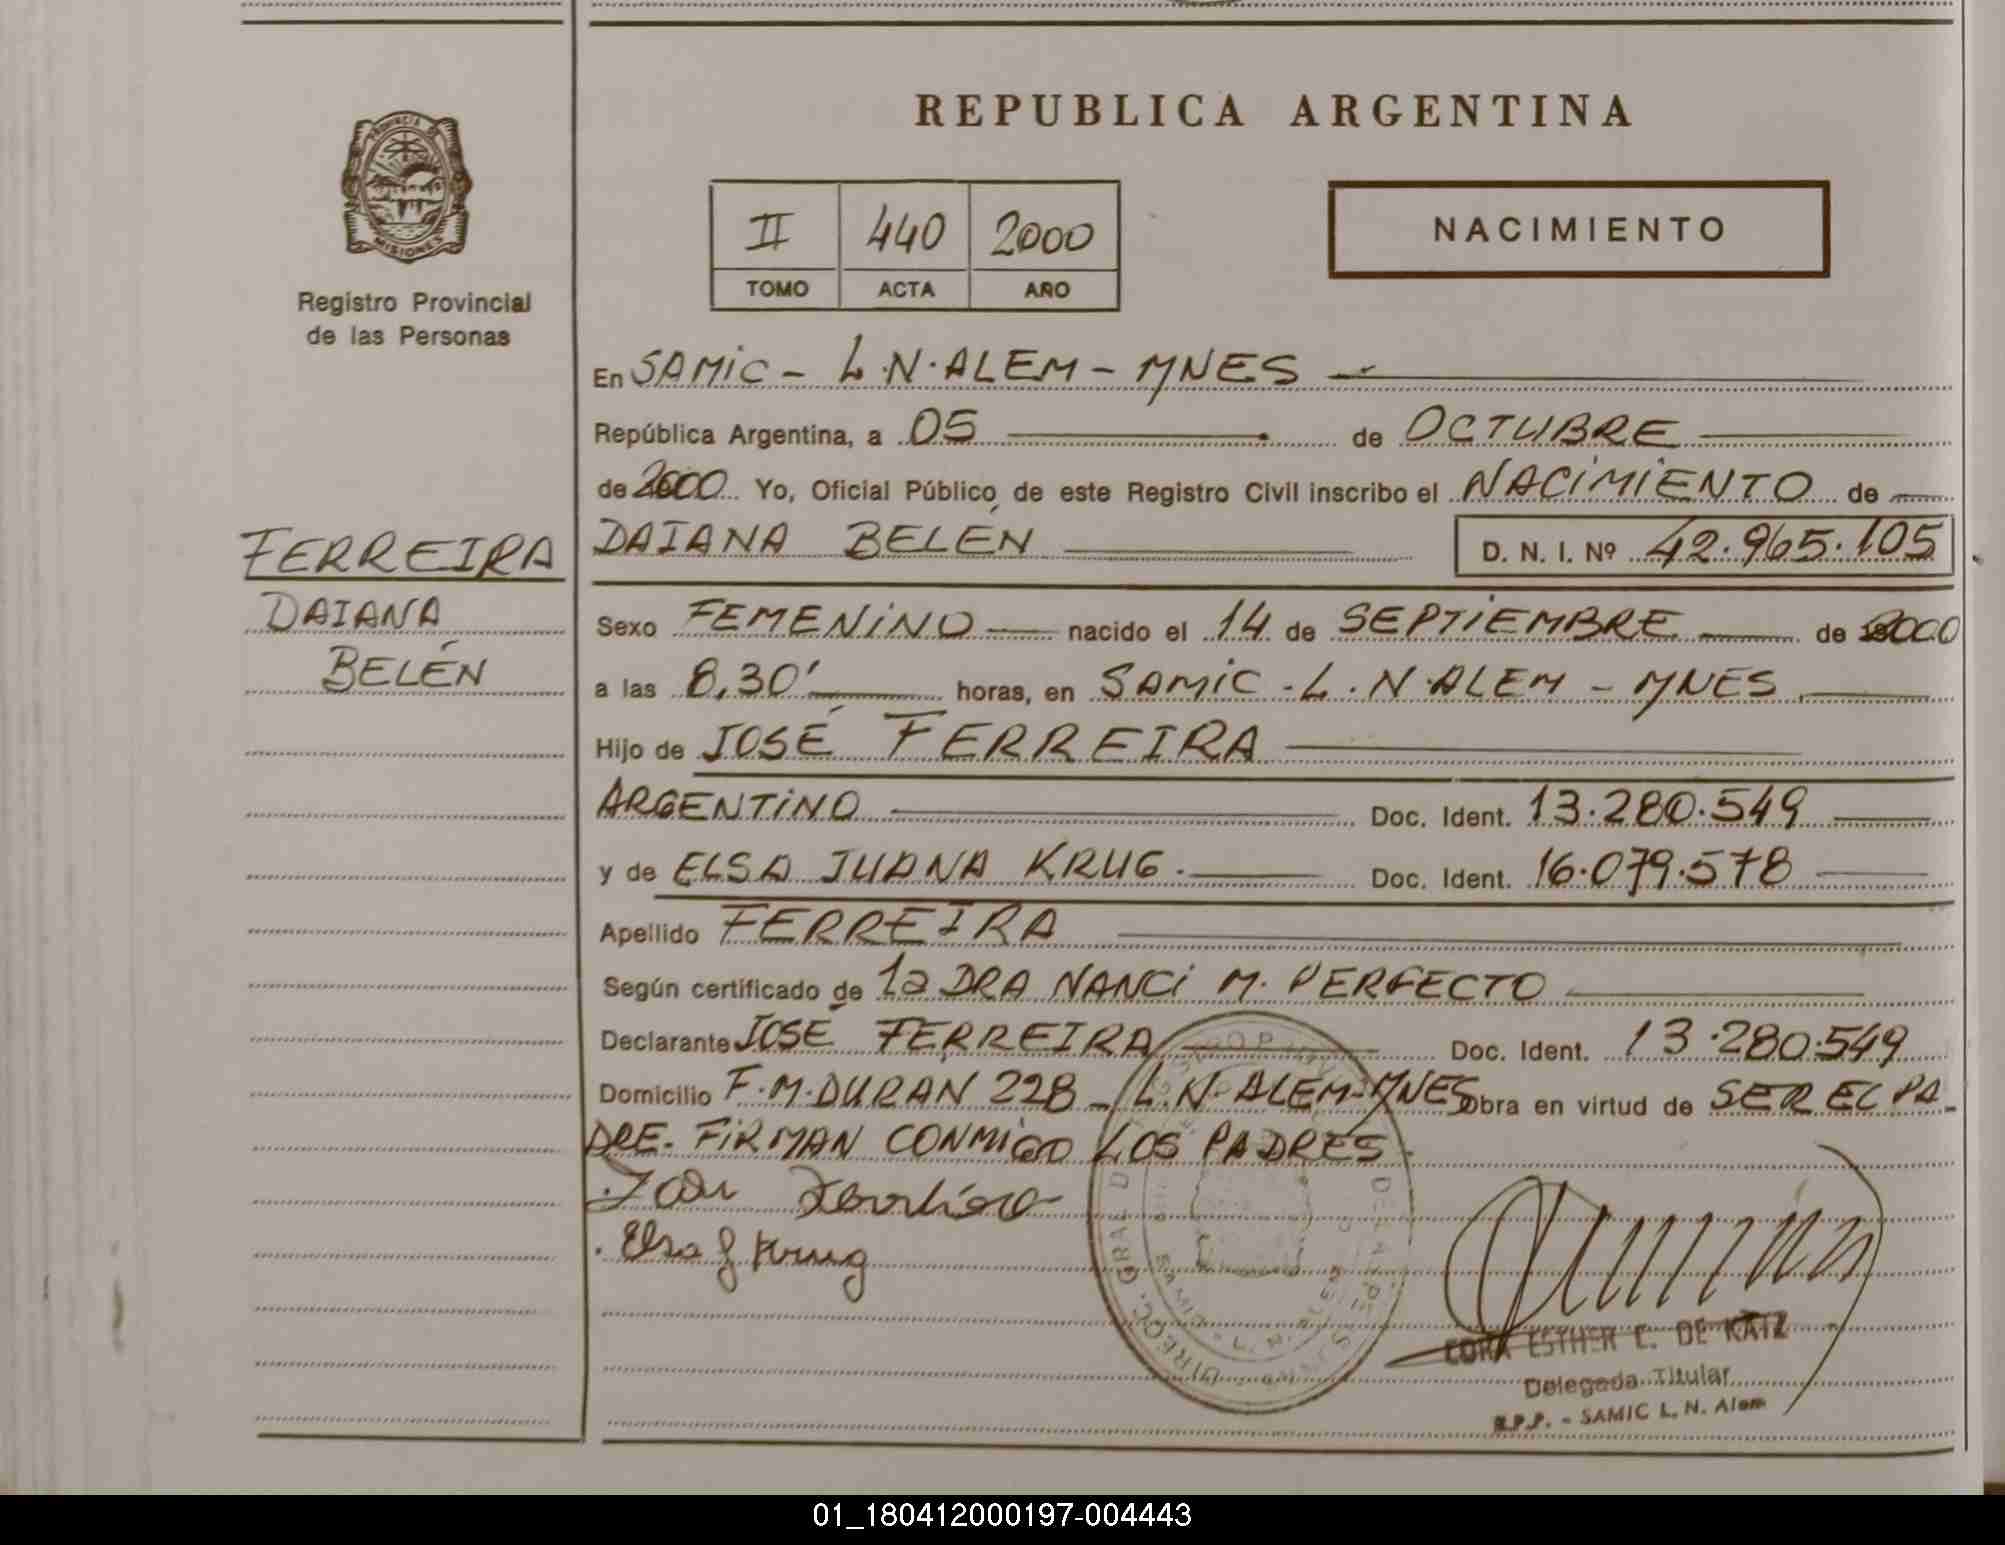 REPUBLICA ARGENTINA
PROVINCIA DE
MISIONES
Registro Provincial
de las Personas
II 440 2000
TOMO ACTA AÑO
NACIMIENTO
En SAMIC - L.N. ALEM - MNES
República Argentina, a 05 de OCTUBRE
de 2000 Yo, Oficial Público de este Registro Civil inscribo el NACIMIENTO de
FERREIRA
DAIANA
BELÉN
DAIANA BELÉN D. N. I. Nº 42.965.105
Sexo FEMENINO nacido el 14 de SEPTIEMBRE de 2000
a las 8,30' horas, en SAMIC - L. N. ALEM - MNES
Hijo de JOSÉ FERREIRA
ARGENTINO Doc. Ident. 13.280.549
y de ELSA JUANA KRUG. Doc. Ident. 16.079.578
Apellido FERREIRA
Según certificado de la DRA NANCI M. PERFECTO
Declarante JOSÉ FERREIRA Doc. Ident. 13.280.549
Domicilio F.M. DURAN 228 - L.N. ALEM - MNES Obra en virtud de SER EL PA-
DRE. FIRMAN CONMIGO LOS PADRES.
Elsa J Krug
CORA ESTHER C. DE KATZ
Delegada Titular
R.P.P. - SAMIC L. N. Alem
01_180412000197-004443